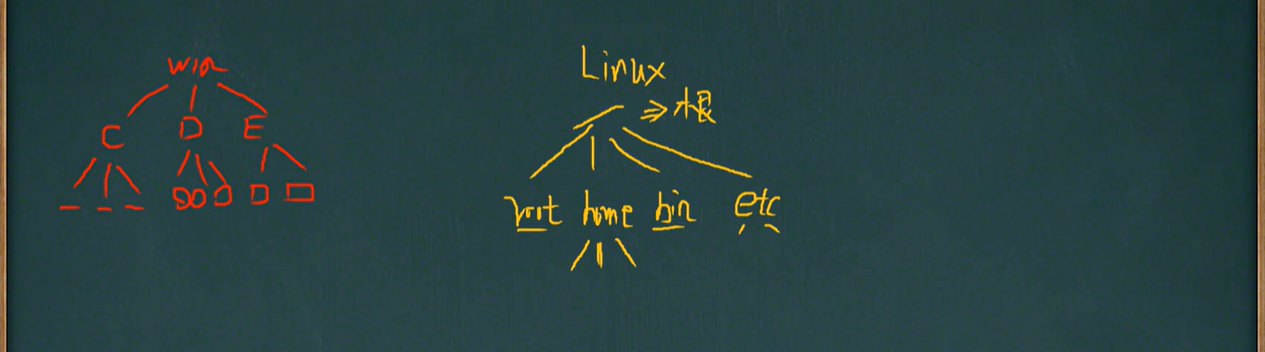 win
C D E
Linux
/ ⇒ 根
root home bin etc